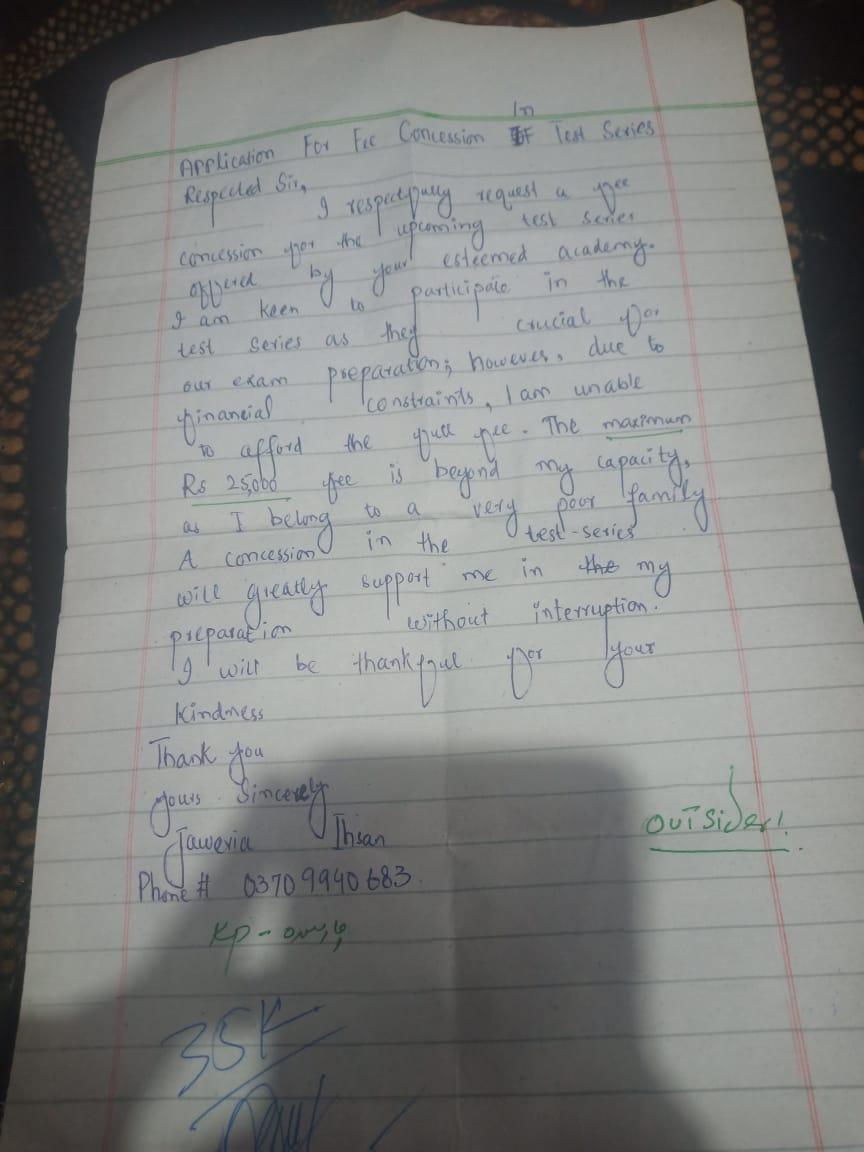 In
Application For Fee Concession Test Series
Respected Sir,
I respectfully request a fee
concession for the upcoming test series
offered by your esteemed academy.
I am keen to participate in the
test series as they crucial for
our exam preparation; however, due to
financial constraints, I am unable
to afford the full fee. The maximum
Rs 25,000 fee is beyond my capacity,
as I belong to a very poor family
A concession in the test-series
will greatly support me in the my
preparation without interruption.
I will be thankful for your
Kindness
Thank you
yours Sincerely
Jaweria Ihsan
Phone # 0370 9940683.
outsider!
KP-
35K